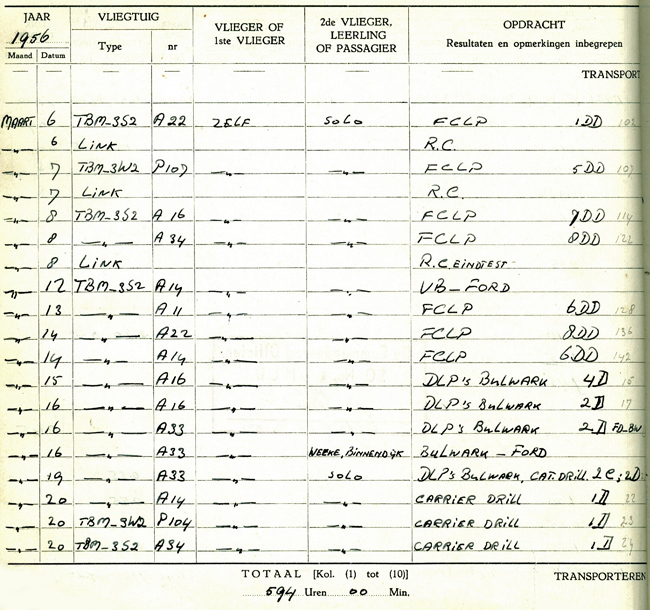 JAAR VLIEGTUIG VLIEGER OF 1ste VLIEGER 2de VLIEGER, LEERLING OF PASSAGIER OPDRACHT
1956 Type nr Resultaten en opmerkingen inbegrepen
Maand Datum
TRANSPORT
MAART 6 TBM-3S2 A22 ZELF SOLO FCLP 1DD 102
-„- 6 LINK R.C.
-„- 7 TBM-3W2 P107 -„- -„- FCLP 5DD 107
-„- 7 LINK R.C.
-„- 8 TBM-3S2 A16 -„- -„- FCLP 7DD 114
-„- 8 -„- A34 -„- -„- FCLP 8DD 122
-„- 8 LINK R.C. EINDTEST
-„- 12 TBM-3S2 A14 -„- -„- VB-FORD
-„- 13 -„- A11 -„- -„- FCLP 6DD 128
-„- 14 -„- A22 -„- -„- FCLP 8DD 136
-„- 14 -„- A14 -„- -„- FCLP 6DD 142
-„- 15 -„- A16 -„- -„- DLP's BULWARK 4D 15
-„- 16 -„- A16 -„- -„- DLP's BULWARK 2D 17
-„- 16 -„- A33 -„- -„- DLP's BULWARK 2D FD-BW
-„- 16 -„- A33 -„- BINNENDIJK BULWARK - FORD
-„- 19 -„- A33 -„- SOLO DLP's BULWARK, CAT. DRILL. 2C; 2D
-„- 20 -„- A14 -„- -„- CARRIER DRILL 1D 22
-„- 20 TBM-3W2 P104 -„- -„- CARRIER DRILL 1D 23
-„- 20 TBM-3S2 A34 -„- -„- CARRIER DRILL 1D 24
TOTAAL [Kol. (1) tot (10)] TRANSPORTEREN
594 Uren 00 Min.